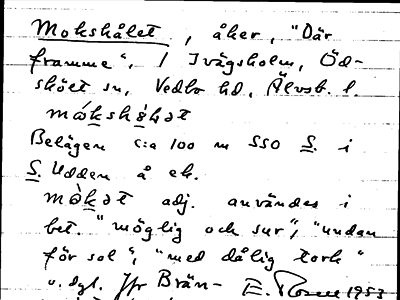 Mokshålet, åker, "Där
framme", / Ivägsholm, Öd-
sköet sn, Vedbo hd, Älvsb. l.
Belägen c:a 100 m SSO S. i
S. Udden å ek.
adj. användes i
bet. "möglig och sur", "undan
för sol", "med dålig tork"
o. dyl. Jfr Brän- E. 1953